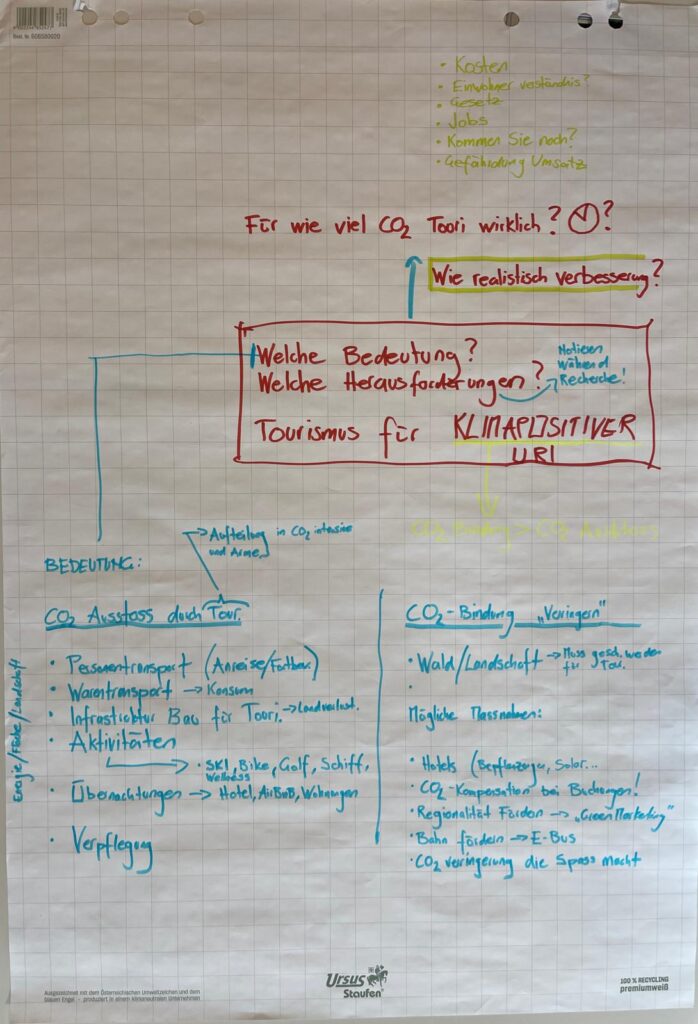 Best. Nr. 608580020
• Kosten
• Einwohner verständnis?
• Gesetz
• Jobs
• Kommen Sie noch?
• Gefährdung Umsatz
Für wie viel CO2 Touri wirklich? ?
Wie realistisch verbesserung?
Welche Bedeutung?
Welche Herausforderungen?
Notieren
Während
Recherche!
Tourismus für KLIMAPOSITIVER
URI
CO2 Bindung > CO2 Ausstoss
→ Aufteilung in CO2 intensive
und Arme
BEDEUTUNG:
CO2 Ausstoss durch Tour.
Energie/Fläche/Landschaft
• Personentransport (Anreise/Fortbew.)
• Warentransport → Konsum
• Infrastruktur Bau für Touri. → Landverlust.
• Aktivitäten
→ • SKI, Bike, Golf, Schiff,
Wellness
• Übernachtungen → Hotel, AirBnB, Wohnungen
• Verpflegung
CO2-Bindung „Verringern"
• Wald/Landschaft → Muss gesch. werden
für Tour.
•
Mögliche Massnahmen:
• Hotels (Bepflanzungen, Solar...
• CO2-Kompensation bei Buchungen!
• Regionalität Fördern → „Green Marketing"
• Bahn fördern → E-Bus
• CO2 verringerung die Spass macht
Ausgezeichnet mit dem Österreichischen Umweltzeichen und dem
blauen Engel - produziert in einem klimaneutralen Unternehmen
Ursus
Staufen
100 % RECYCLING
premiumweiß